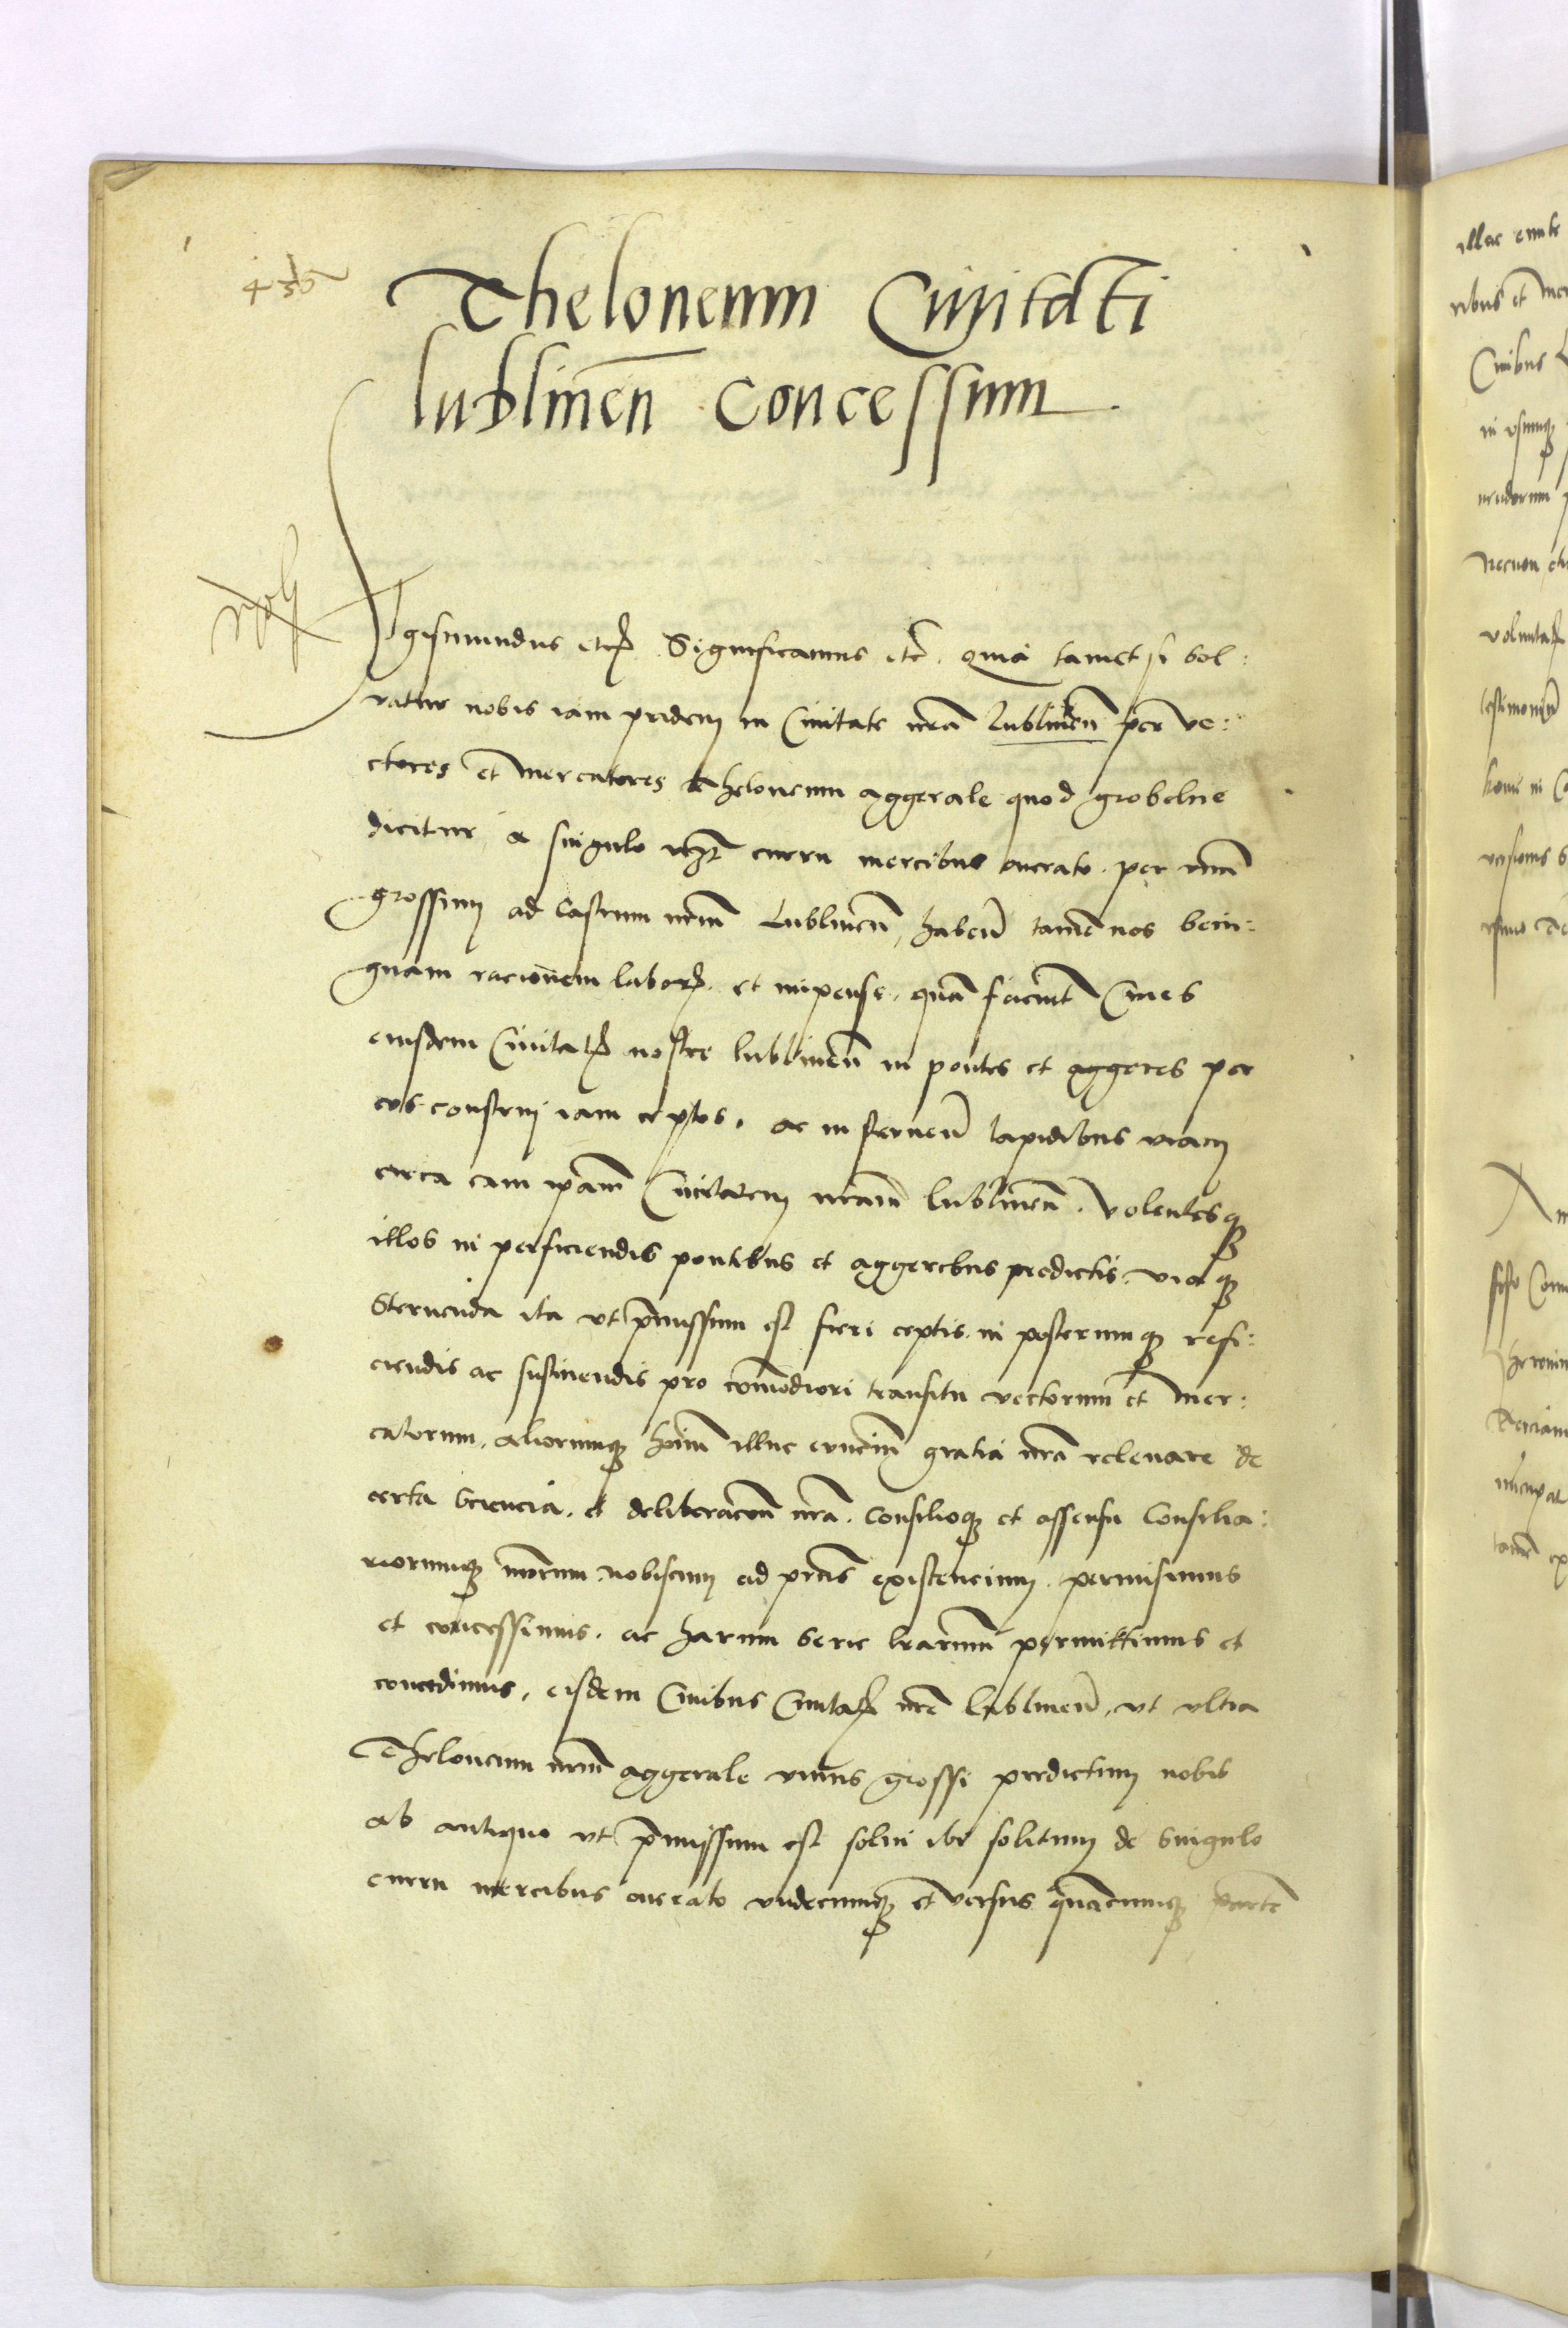 Theloneum Civitati
lublinen̄ concessum
Sigismundus etcꝭ. Significamus etc̄. quia tametsi sol:
vatur nobis iam pridem in Civitate nr̄a Lublinen̄ per ve:
ctores et mercatores Theloneum aggerale quod grobelne
dicitur, a singulo vꝫt curru mercibus onerato. per vnū
grossum ad Castrum nr̄m Lublinen̄, haben̄ tamē nos beni:
gnam racionem laborꝭ. et impense. quā faciūt Cives
eiusdem Civitatꝭ nostre lublinen̄ in pontes et aggeres per
eos construi iam ceptos. ac in sternen̄ lapidibus viam
circa eam ip̄am Civitatem nr̄am lublinen̄. Volentesqꝫ
illos in perficiendis pontibus et aggeribus predictis. viaqꝫ
sternenda ita vt p̄missum est fieri ceptis. in posterumqꝫ refi:
ciendis ac sustinendis pro com̄odiori transitu vectorum et mer:
catorum. aliorumqꝫ hoīm illuc eunciū gratia nr̄a relevare de
certa sciencia. et deliberacōn nr̄a. Consilioqꝫ et assensu Consilia:
riorumqꝫ nr̄orum nobiscum ad pr̄ns existencium. permisimus
et concessimus. ac harum serie lrarum permittimus et
concedimus, eisdem Civibus Civitatꝭ nr̄e lublinen̄, vt ultra
Theloneum nr̄m aggerale vnius grossi predictum nobis
ab antiquo vt p̄missum est solui ibi solitum de singulo
curru mercibus onerato vndecumqꝫ et versus quācumqꝫ partē